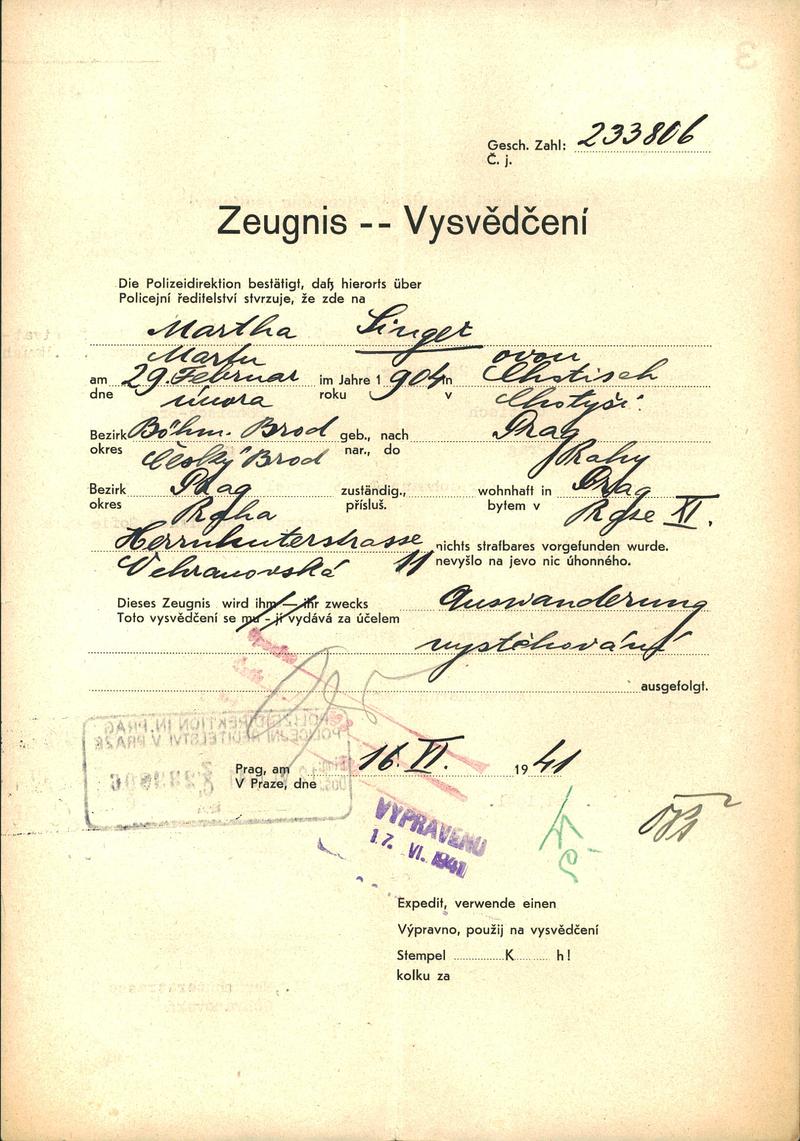 Gesch. Zahl: 233806
Č. j.
Zeugnis -- Vysvědčení
Die Polizeidirektion bestätigt, daß hierorts über
Policejní ředitelství stvrzuje, že zde na
Martha Singer
Martu ovou
am 29. Februar im Jahre 1 904 in Chotisch
dne února roku v Chotýši
Bezirk Böhm. Brod geb., nach Prag
okres Český Brod nar., do Prahy
Bezirk Prag zuständig., wohnhaft in Prag
okres Praha přísluš. bytem v Praze XI.
Herrnhuterstrasse nichts strafbares vorgefunden wurde.
11 nevyšlo na jevo nic úhonného.
Dieses Zeugnis wird ihm — ihr zwecks Auswanderung
Toto vysvědčení se mu - jí vydává za účelem
vystěhování
ausgefolgt.
POLIZEIDIREKTION IN PRAG
POLICEJNÍ ŘEDITELSTVÍ V PRAZE
Prag, am 16. VI. 19 41
V Praze, dne
VYPRAVENO
17. VI. 1941
Expedit, verwende einen
Výpravno, použij na vysvědčení
Stempel K h!
kolku za